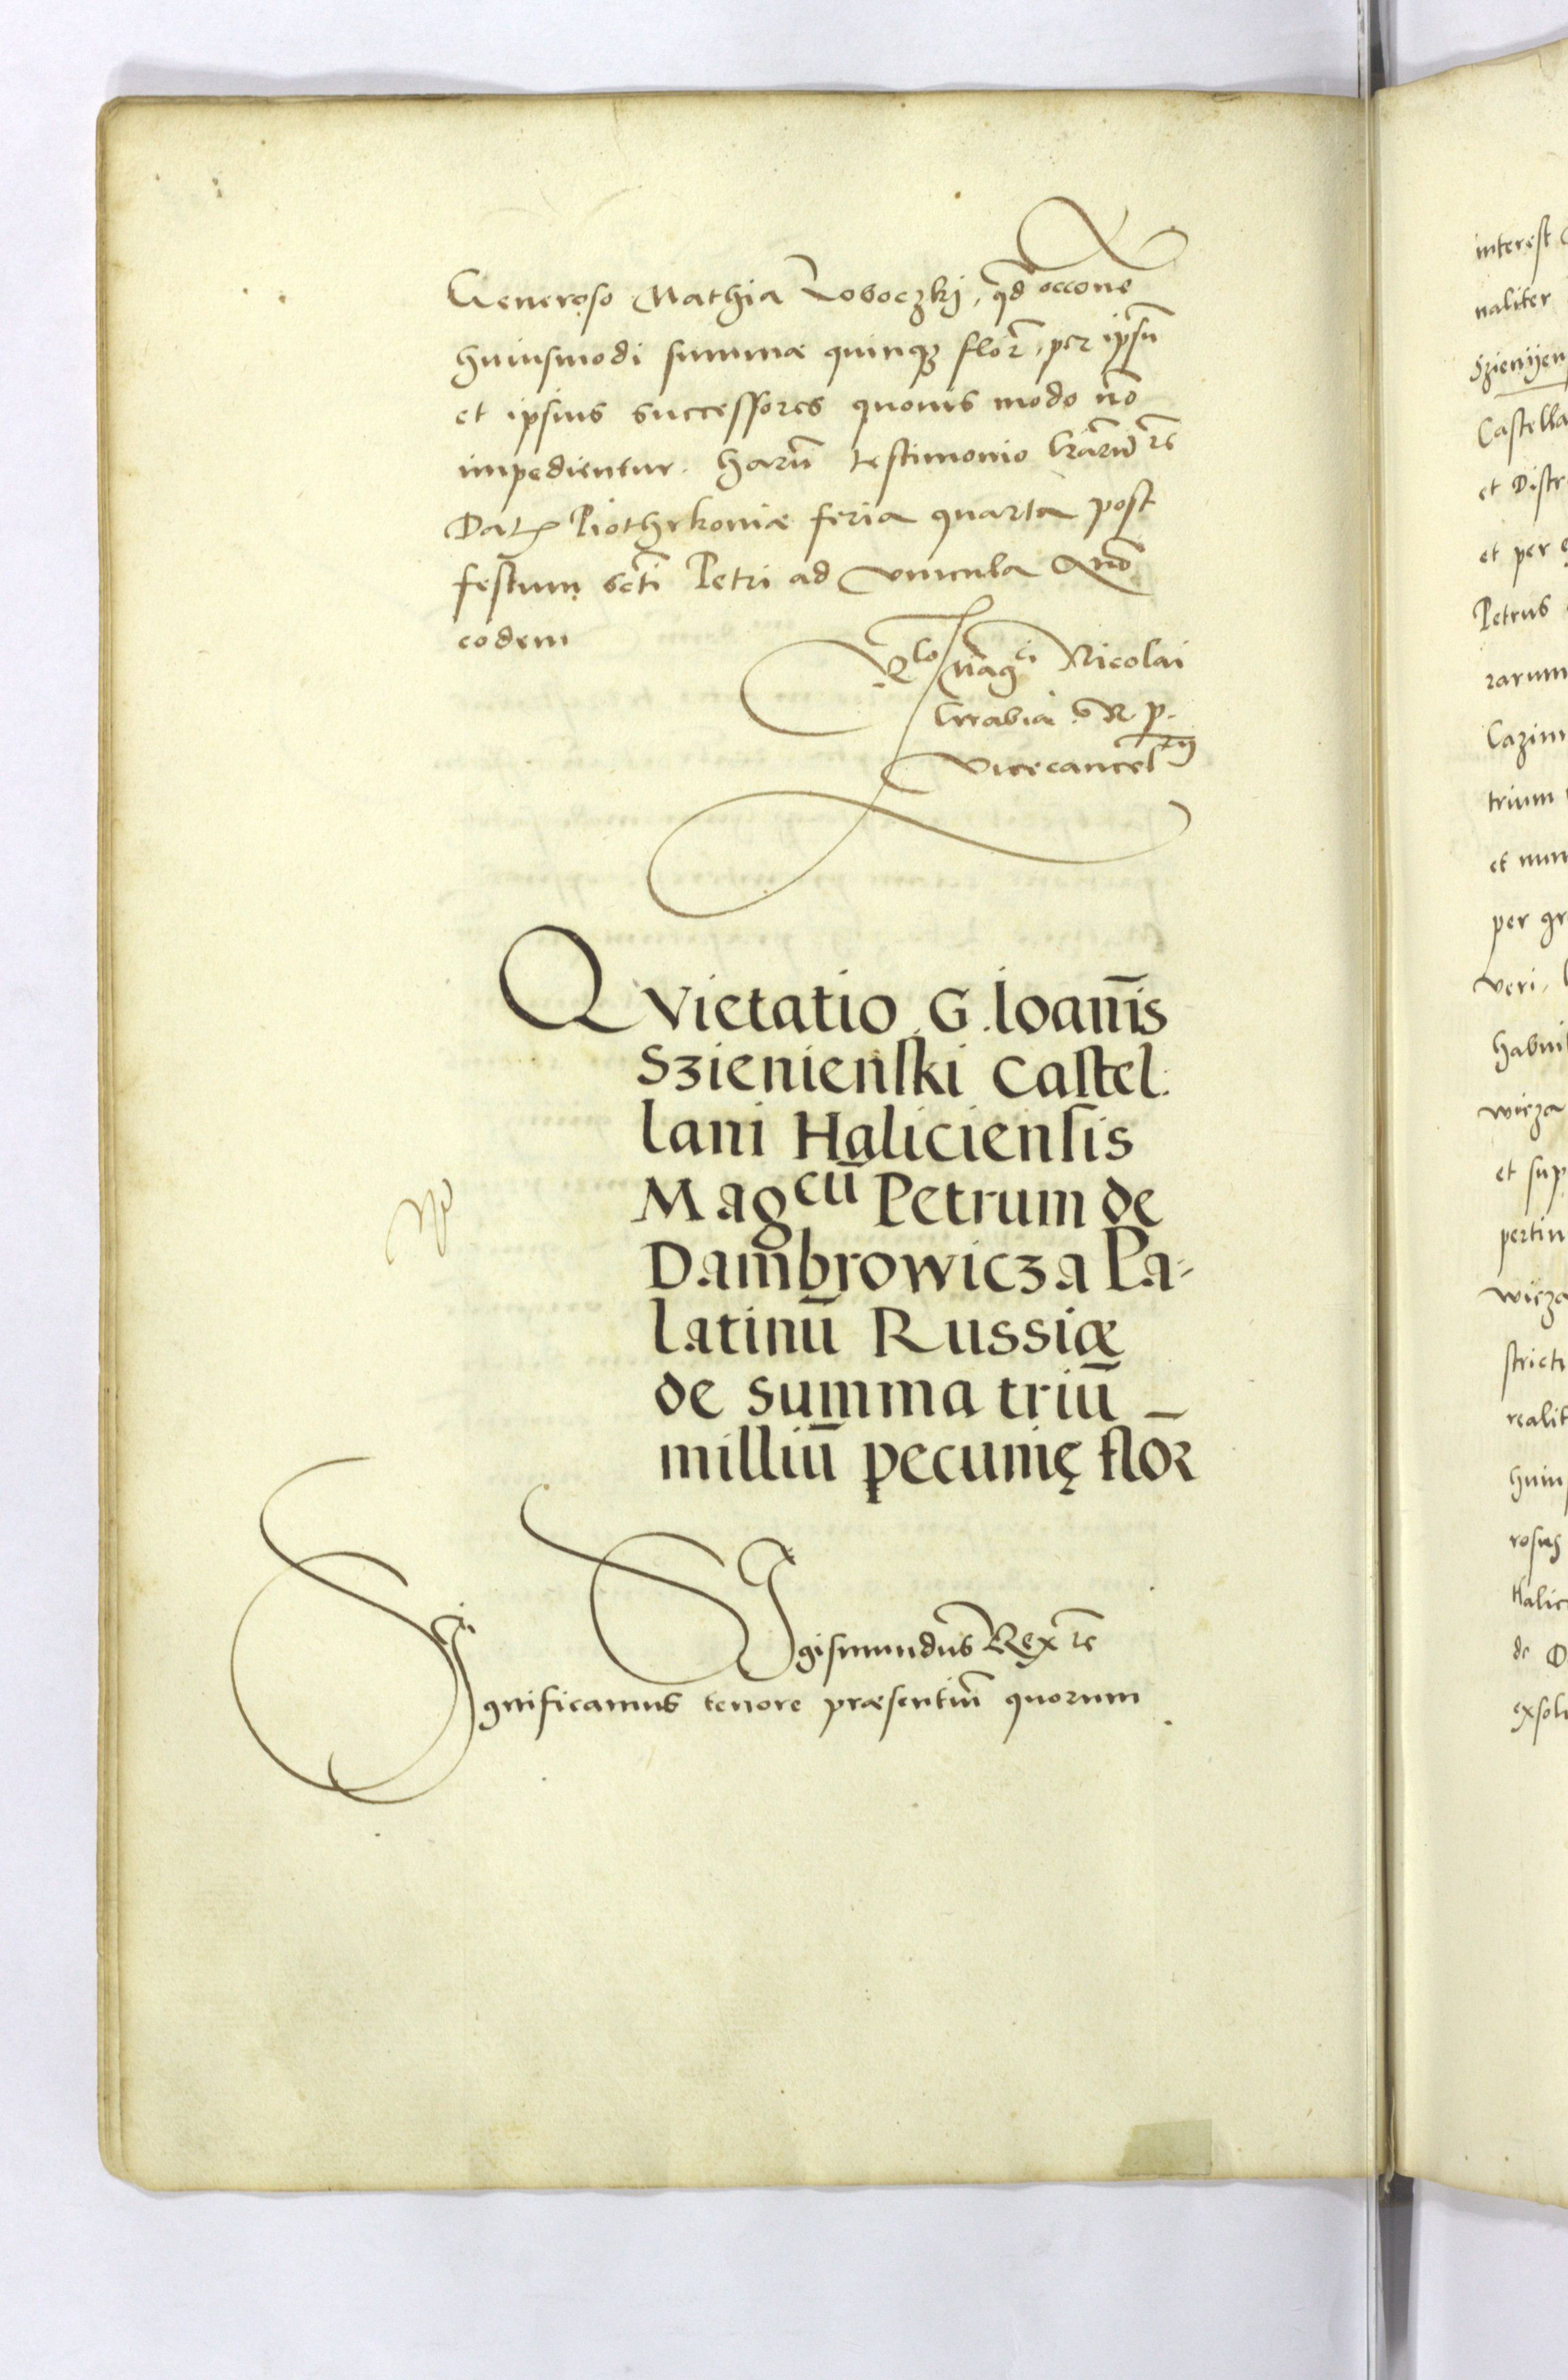 Generoso Mathia Loboczkj, qd occone
huiusmodi summæ quinqʒ florͫ, per ipsū
et ipsius successores quouis modo nō
impedientur. harū testimonio lrārū rc
Dat Piothrkoniæ feria quarta post
festum scti Petri ad vincula Anō
eodem
Rlo magci Nicolai
Grabia . R. p.
vicecancelrij
QVietatio G. Ioannīs
Szienienski Castel:
lani Haliciensis
Magcū Petrum de
Dambrowicza Pa-
latinū Russiæ
de summa triū
milliū pecunię flor
Sigismundus Rex rc
Significamus tenore præsentiū quorum
interest
naliter
Szienijen
Castella
et Distr
et per
Petrus
rarum
Cazim
trium
et nun
per gr
veri,
habui
wicza
et sup
pertin
wicza
strict
realit
huiu
rosus
Halic
de D
exsol